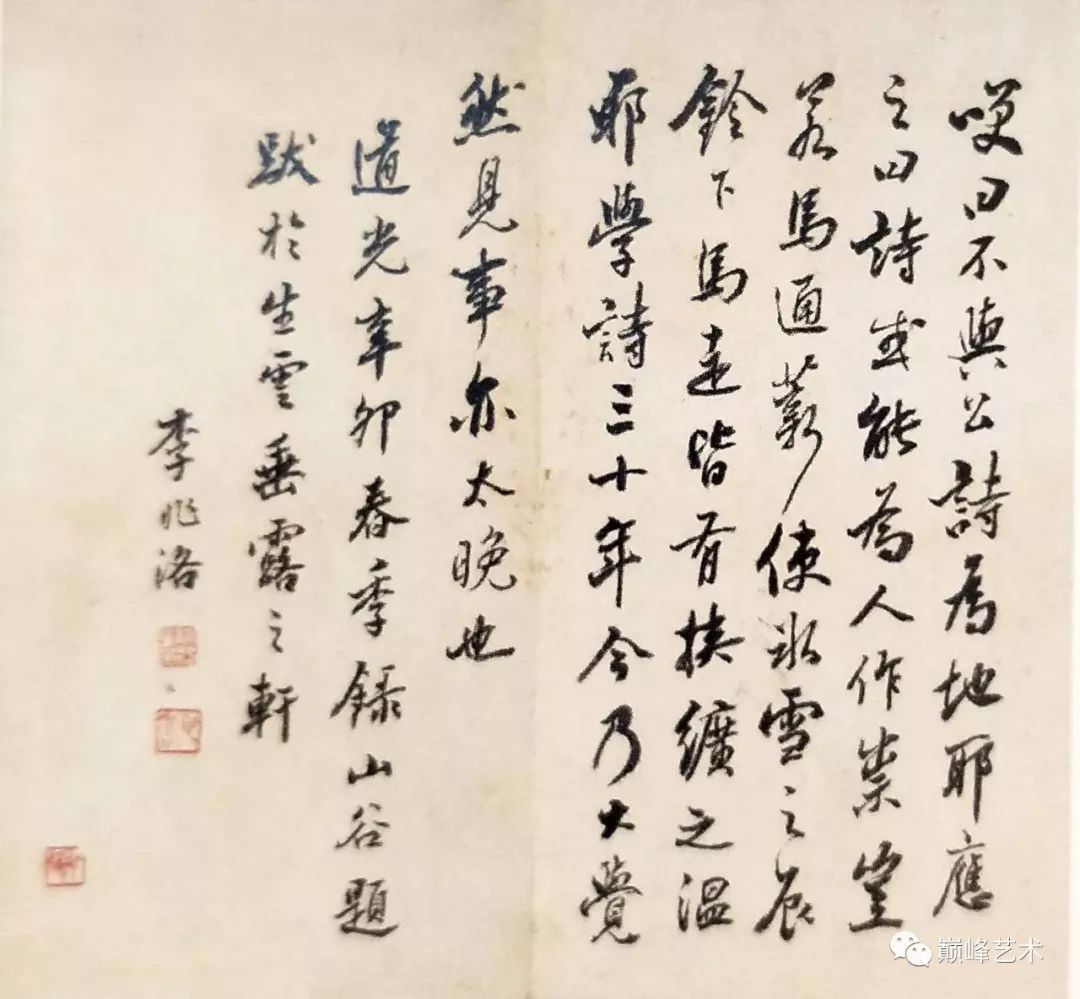 嘆曰不與公詩為地耶應
之曰詩或能為人作祟豈
若馬通薪使冰雪之辰
鈴下馬走皆有挾纊之溫
耶學詩三十年今乃大覺
然見事亦太晚也
道光辛卯春季錄山谷題
跋於生雲垂露之軒
李兆洛
巅峰艺术